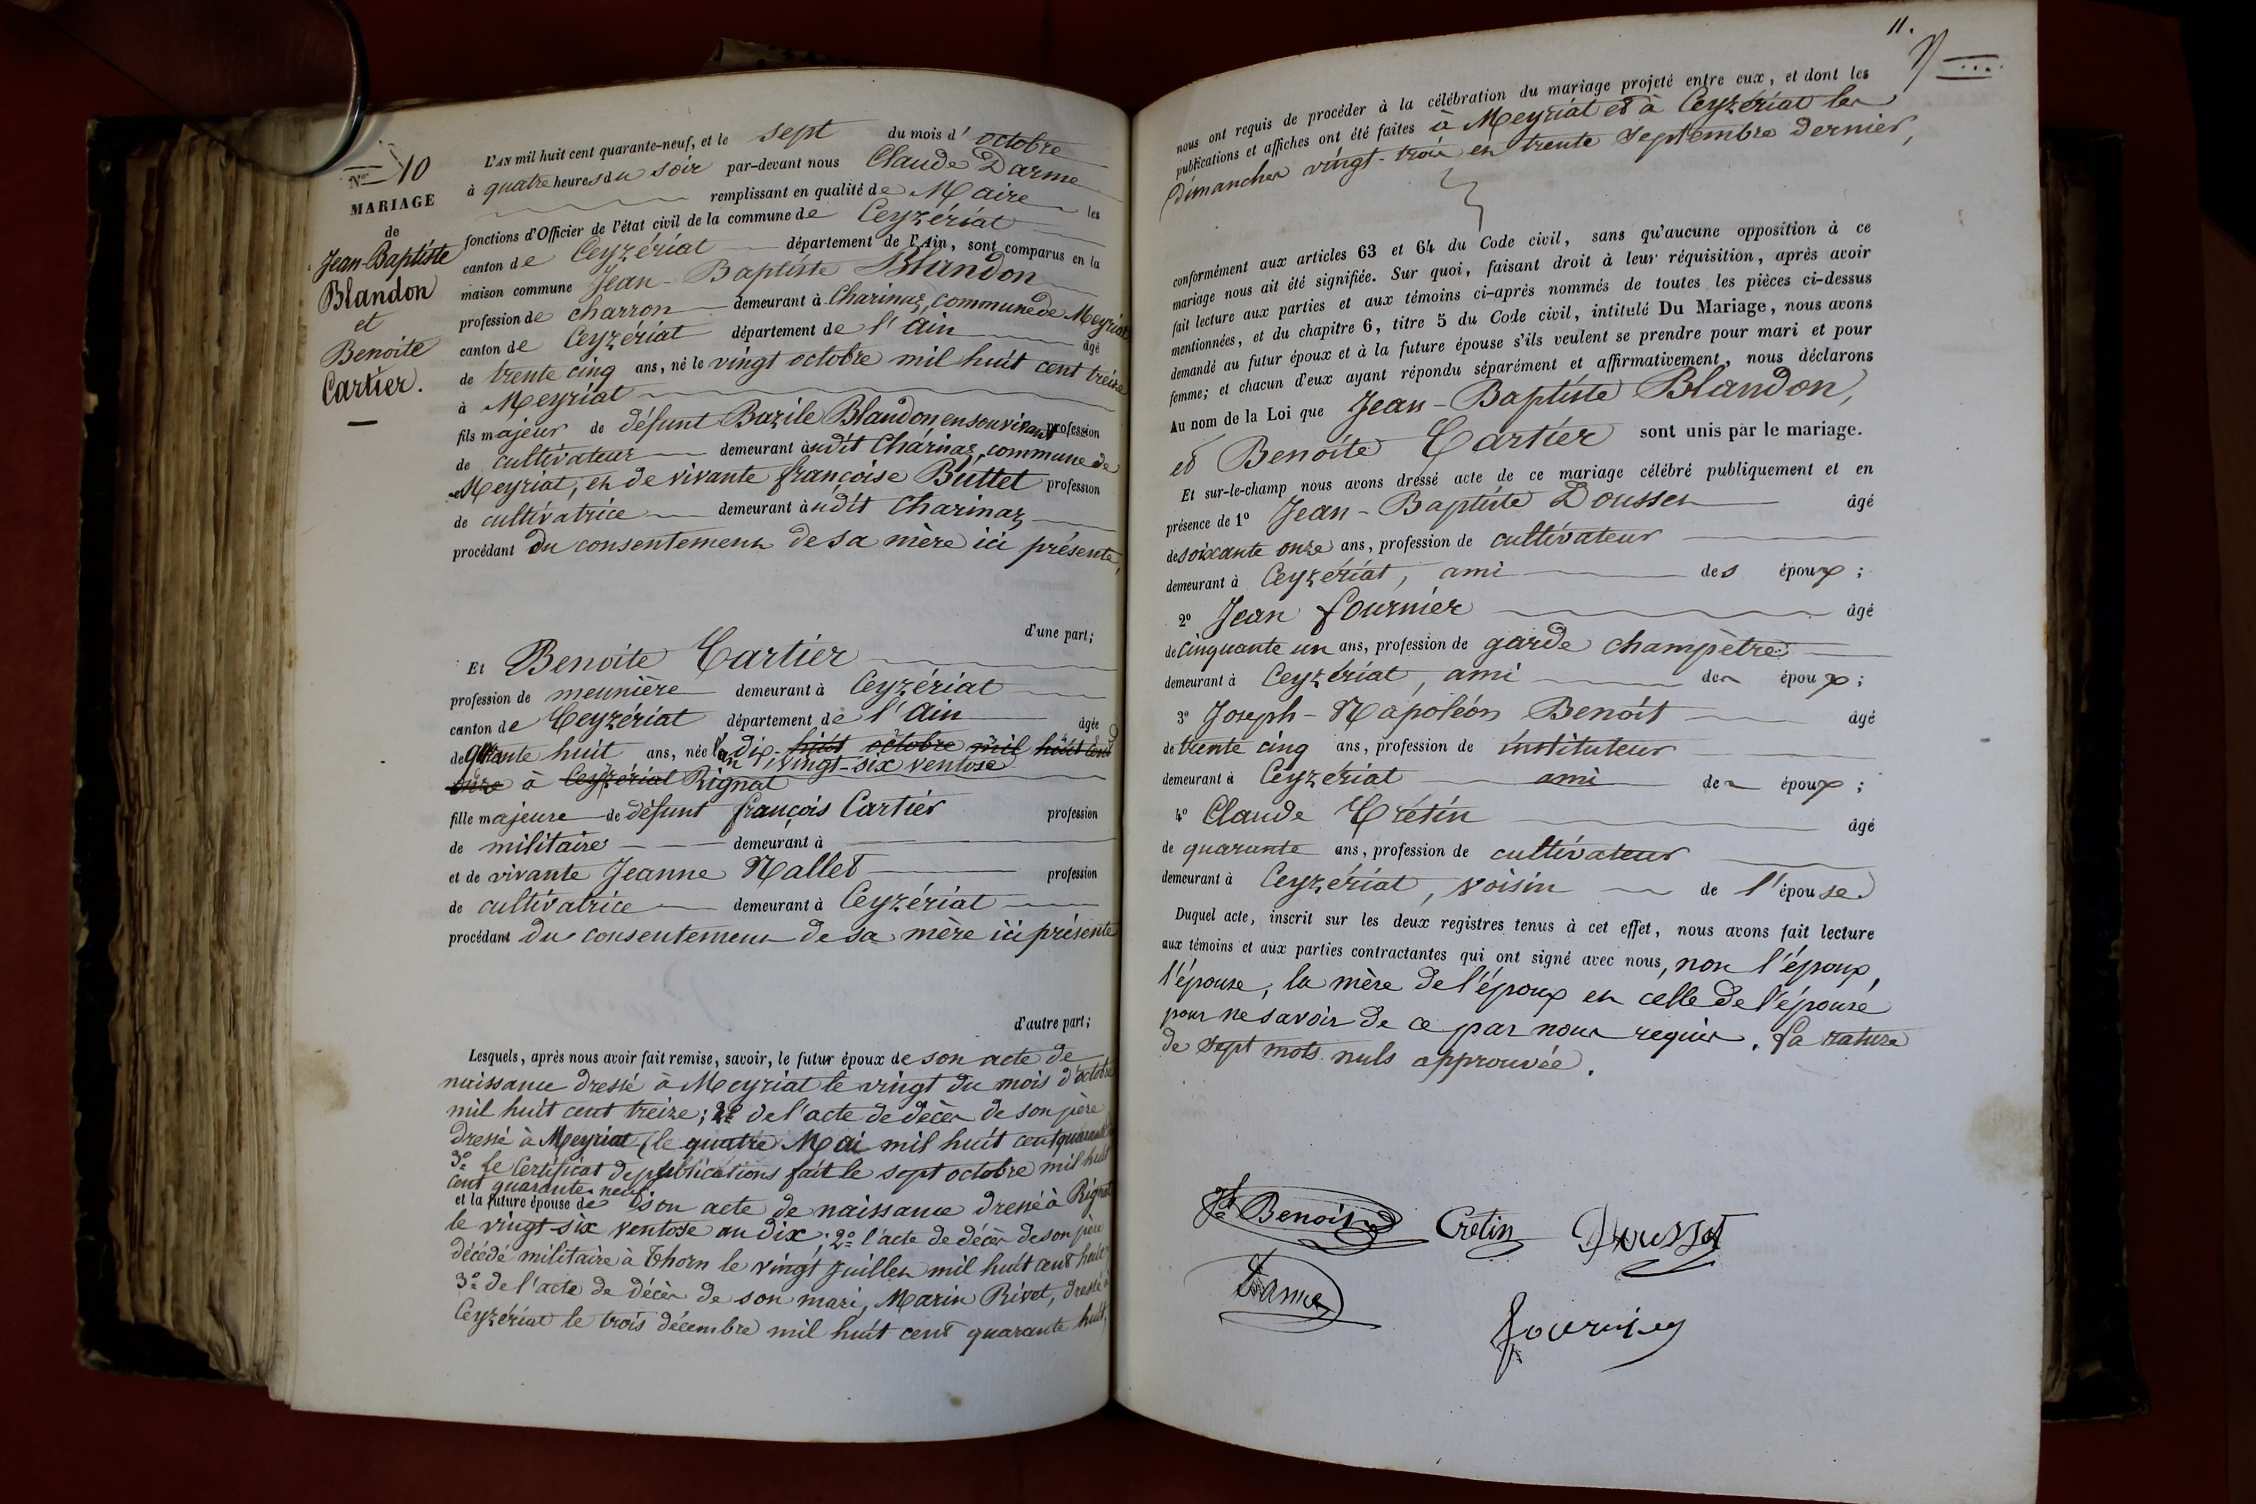 N° 10
MARIAGE
de
Jean-Baptiste
Blandon
et
Benoite
Cartier.
L'AN mil huit cent quarante-neuf, et le sept du mois d'octobre
à quatre heures du soir par-devant nous Claude Darme
remplissant en qualité de Maire les
fonctions d'Officier de l'état civil de la commune de Ceyzériat
canton de Ceyzériat département de l'Ain, sont comparus en la
maison commune Jean-Baptiste Blandon
profession de charron demeurant à Charinaz, commune de Meyriat
canton de Ceyzériat département de l'Ain âgé
de trente cinq ans, né le vingt octobre mil huit cent treize
à Meyriat
fils majeur de défunt Bazile Blandon en son vivant profession
de cultivateur demeurant à udit Charinaz, commune de
Meyriat, et de vivante françoise Buttet profession
de cultivatrice demeurant à udit Charinaz
procédant du consentement de sa mère ici présente,
d'une part;
Et Benoite Cartier
profession de meunière demeurant à Ceyzériat
canton de Ceyzériat département de l'Ain âgée
de quarante huit ans, née l'an dix-huit octobre mil huit cent
onze à Ceyzériat Rignat dix, vingt-six ventose
fille majeure de défunt françois Cartier profession
de militaire demeurant à
et de vivante Jeanne Nallet profession
de cultivatrice demeurant à Ceyzériat
procédant du consentement de sa mère ici présente
d'autre part;
Lesquels, après nous avoir fait remise, savoir, le futur époux de son acte de
naissance dressé à Meyriat le vingt du mois d'octobre
mil huit cent treize; 2° de l'acte de décès de son père
dressé à Meyriat le quatre Mai mil huit cent quarante
3° le Certificat de publications fait le sept octobre mil huit
cent quarante neuf
et la future épouse de son acte de naissance dressé à Rignat
le vingt-six ventose an dix; 2° l'acte de décès de son père
décédé militaire à Thorn le vingt juillet mil huit cent huit
3° de l'acte de décès de son mari, Marin Rivet, dressé à
Ceyzériat le trois décembre mil huit cent quarante huit,
11.
nous ont requis de procéder à la célébration du mariage projeté entre eux, et dont les
publications et affiches ont été faites à Meyriat et à Ceyzériat les
dimanches vingt-trois et trente Septembre dernier,
conformément aux articles 63 et 64 du Code civil, sans qu'aucune opposition à ce
mariage nous ait été signifiée. Sur quoi, faisant droit à leur réquisition, après avoir
fait lecture aux parties et aux témoins ci-après nommés de toutes les pièces ci-dessus
mentionnées, et du chapitre 6, titre 5 du Code civil, intitulé Du Mariage, nous avons
demandé au futur époux et à la future épouse s'ils veulent se prendre pour mari et pour
femme; et chacun d'eux ayant répondu séparément et affirmativement, nous déclarons
Au nom de la Loi que Jean-Baptiste Blandon,
et Benoite Cartier sont unis par le mariage.
Et sur-le-champ nous avons dressé acte de ce mariage célébré publiquement et en
présence de 1° Jean-Baptiste Dousset âgé
de soixante onze ans, profession de cultivateur
demeurant à Ceyzériat, ami des époux;
2° Jean fournier âgé
de cinquante un ans, profession de garde champêtre
demeurant à Ceyzériat, ami des époux;
3° Joseph-Napoléon Benoit âgé
de trente cinq ans, profession de instituteur
demeurant à Ceyzériat ami des époux;
4° Claude Crétin âgé
de quarante ans, profession de cultivateur
demeurant à Ceyzériat, voisin de l'épouse
Duquel acte, inscrit sur les deux registres tenus à cet effet, nous avons fait lecture
aux témoins et aux parties contractantes qui ont signé avec nous, non l'époux,
l'épouse, la mère de l'époux et celle de l'épouse
pour ne savoir de ce par nous requis. La rature
de sept mots nuls approuvée.
Benoit Cretin Dousset
Darme
fournier